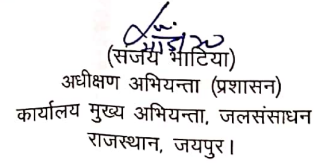 (संजय भाटिया)
अधीक्षण अभियन्ता (प्रशासन)
कार्यालय मुख्य अभियन्ता, जलसंसाधन
राजस्थान, जयपुर।